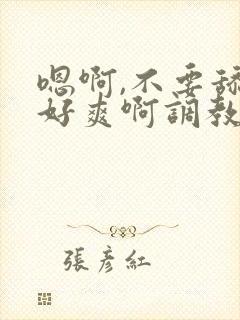 嗯啊,不要舔
好爽啊調教
張彥紅